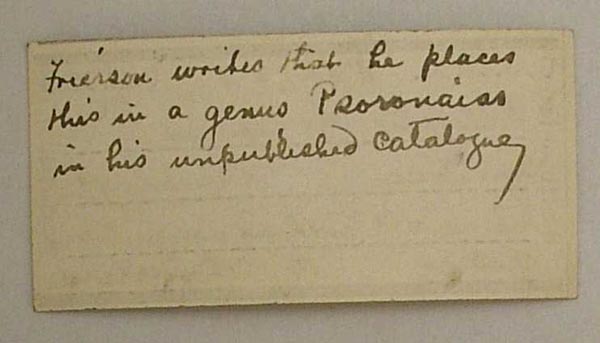 Frierson writes that he places
this in a genus Psoronaias
in his unpublished catalogue